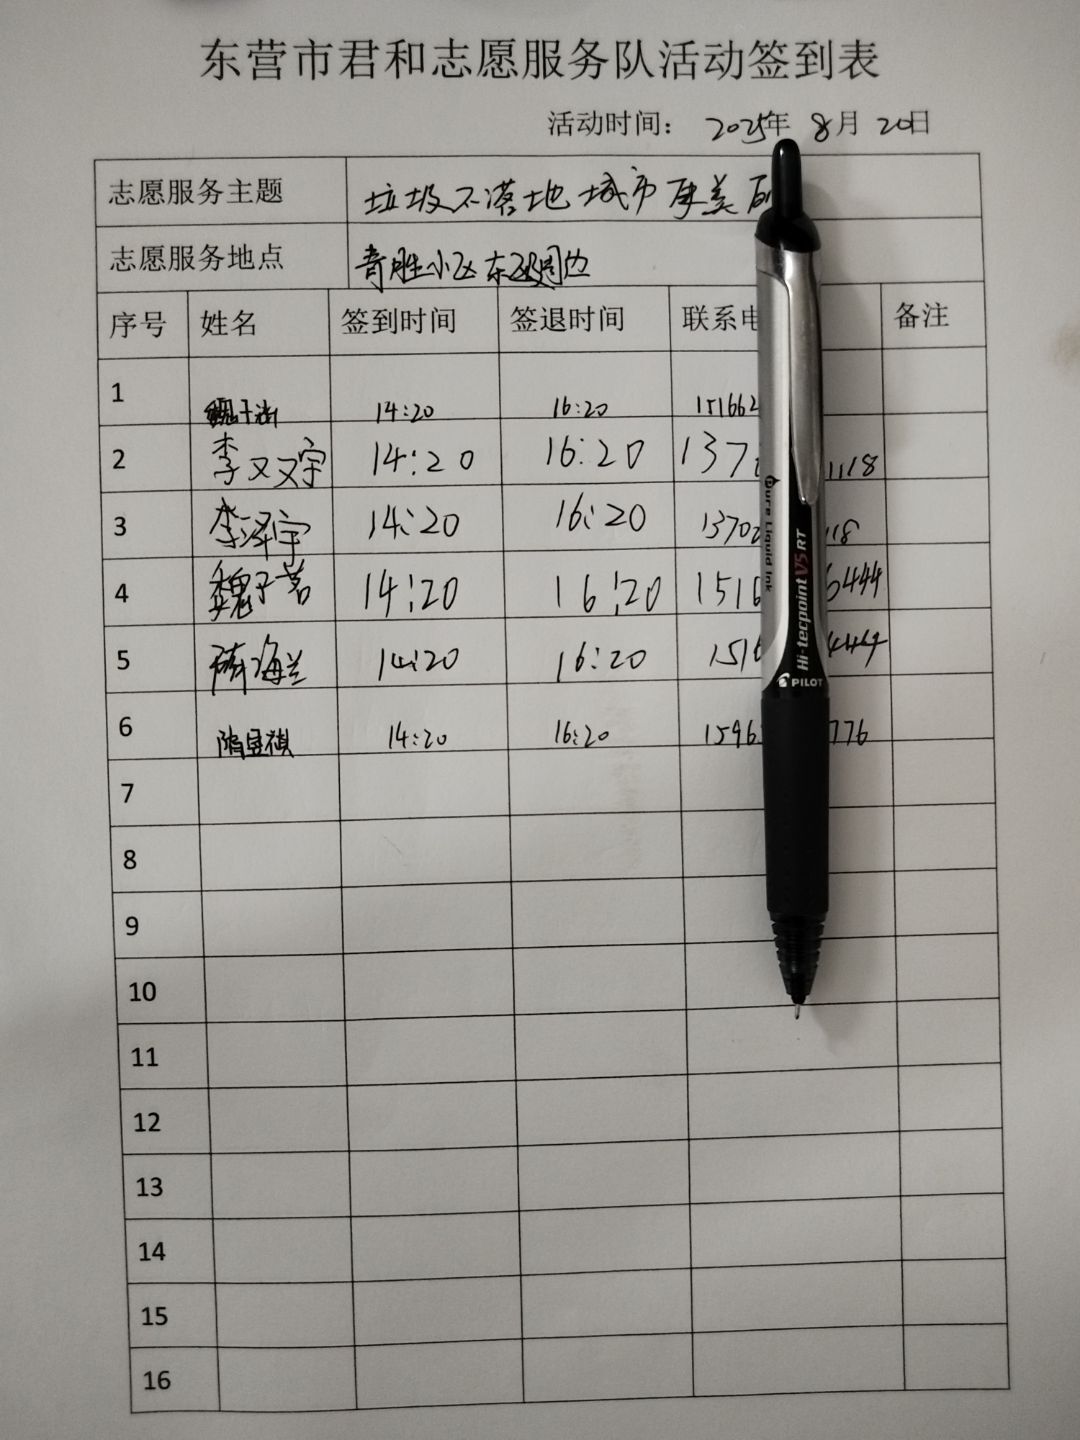 东营市君和志愿服务队活动签到表
活动时间： 2025年 8月 20日
志愿服务主题 垃圾不落地 城市更美丽
志愿服务地点 青胜小区东边周边
序号 姓名 签到时间 签退时间 联系电 备注
1 魏子涵 14:20 16:20 151662
2 李又又宇 14:20 16:20 137 1118
3 李泽宇 14:20 16:20 13702 118
4 魏子茗 14:20 16:20 1516 6444
5 隋海兰 14:20 16:20 1516 4444
6 隋昱祺 14:20 16:20 1596 776
7
8
9
10
11
12
13
14
15
16
Pure Liquid Ink
Hi-tecpoint V5 RT
PILOT